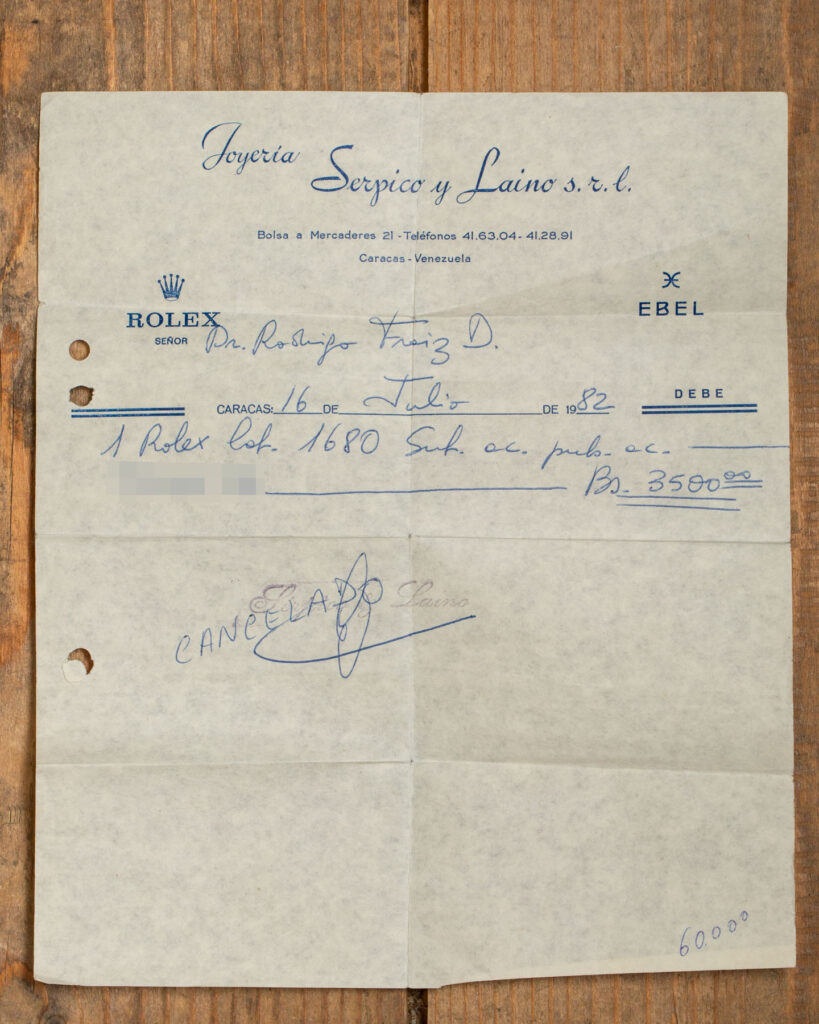 Joyería Serpico y Laino s.r.l.
Bolsa a Mercaderes 21 - Teléfonos 41.63.04 - 41.28.91
Caracas - Venezuela
ROLEX
EBEL
SEÑOR Dr. Rodrigo D.
CARACAS: 16 DE Julio DE 1982
DEBE
1 Rolex 1680 Sub. ac. pub. ac.
Bs. 3500,00
Laino
CANCELADO
60000